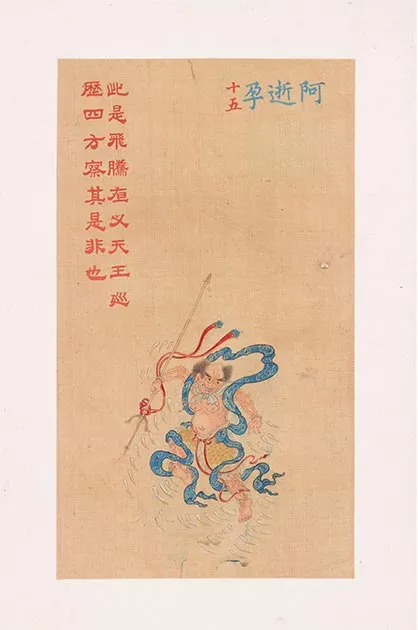 阿逝孕
十五
此是飛騰夜叉天王廵
歷四方察其是非也